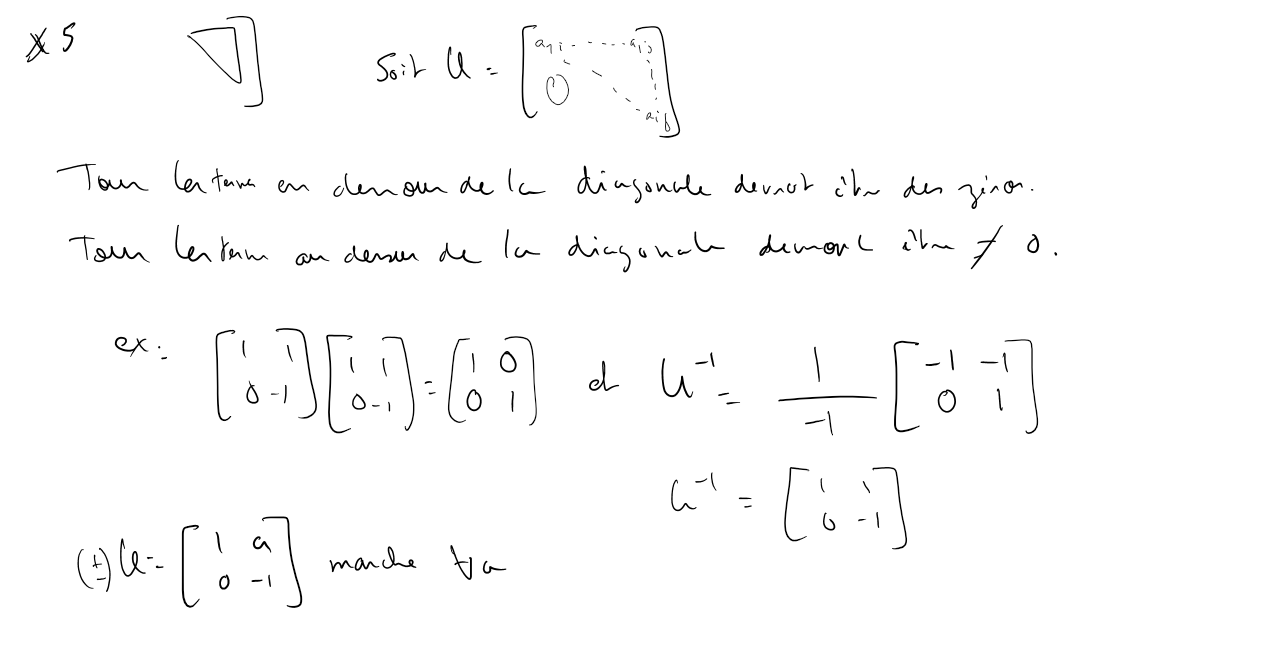 5 Soit U = [a_{1i} ... a_{ij} 0 a_{ij}]
Tous les termes en dessous de la diagonale devront être des zéros.
Tous les termes au dessus de la diagonale devront être ≠ 0.
ex: [1 1; 0 -1] [1 1; 0 -1] = [1 0; 0 1] et U^{-1} = \frac{1}{-1} [-1 -1; 0 1]
U^{-1} = [1 1; 0 -1]
(±) U = [1 a; 0 -1] marche ∀a